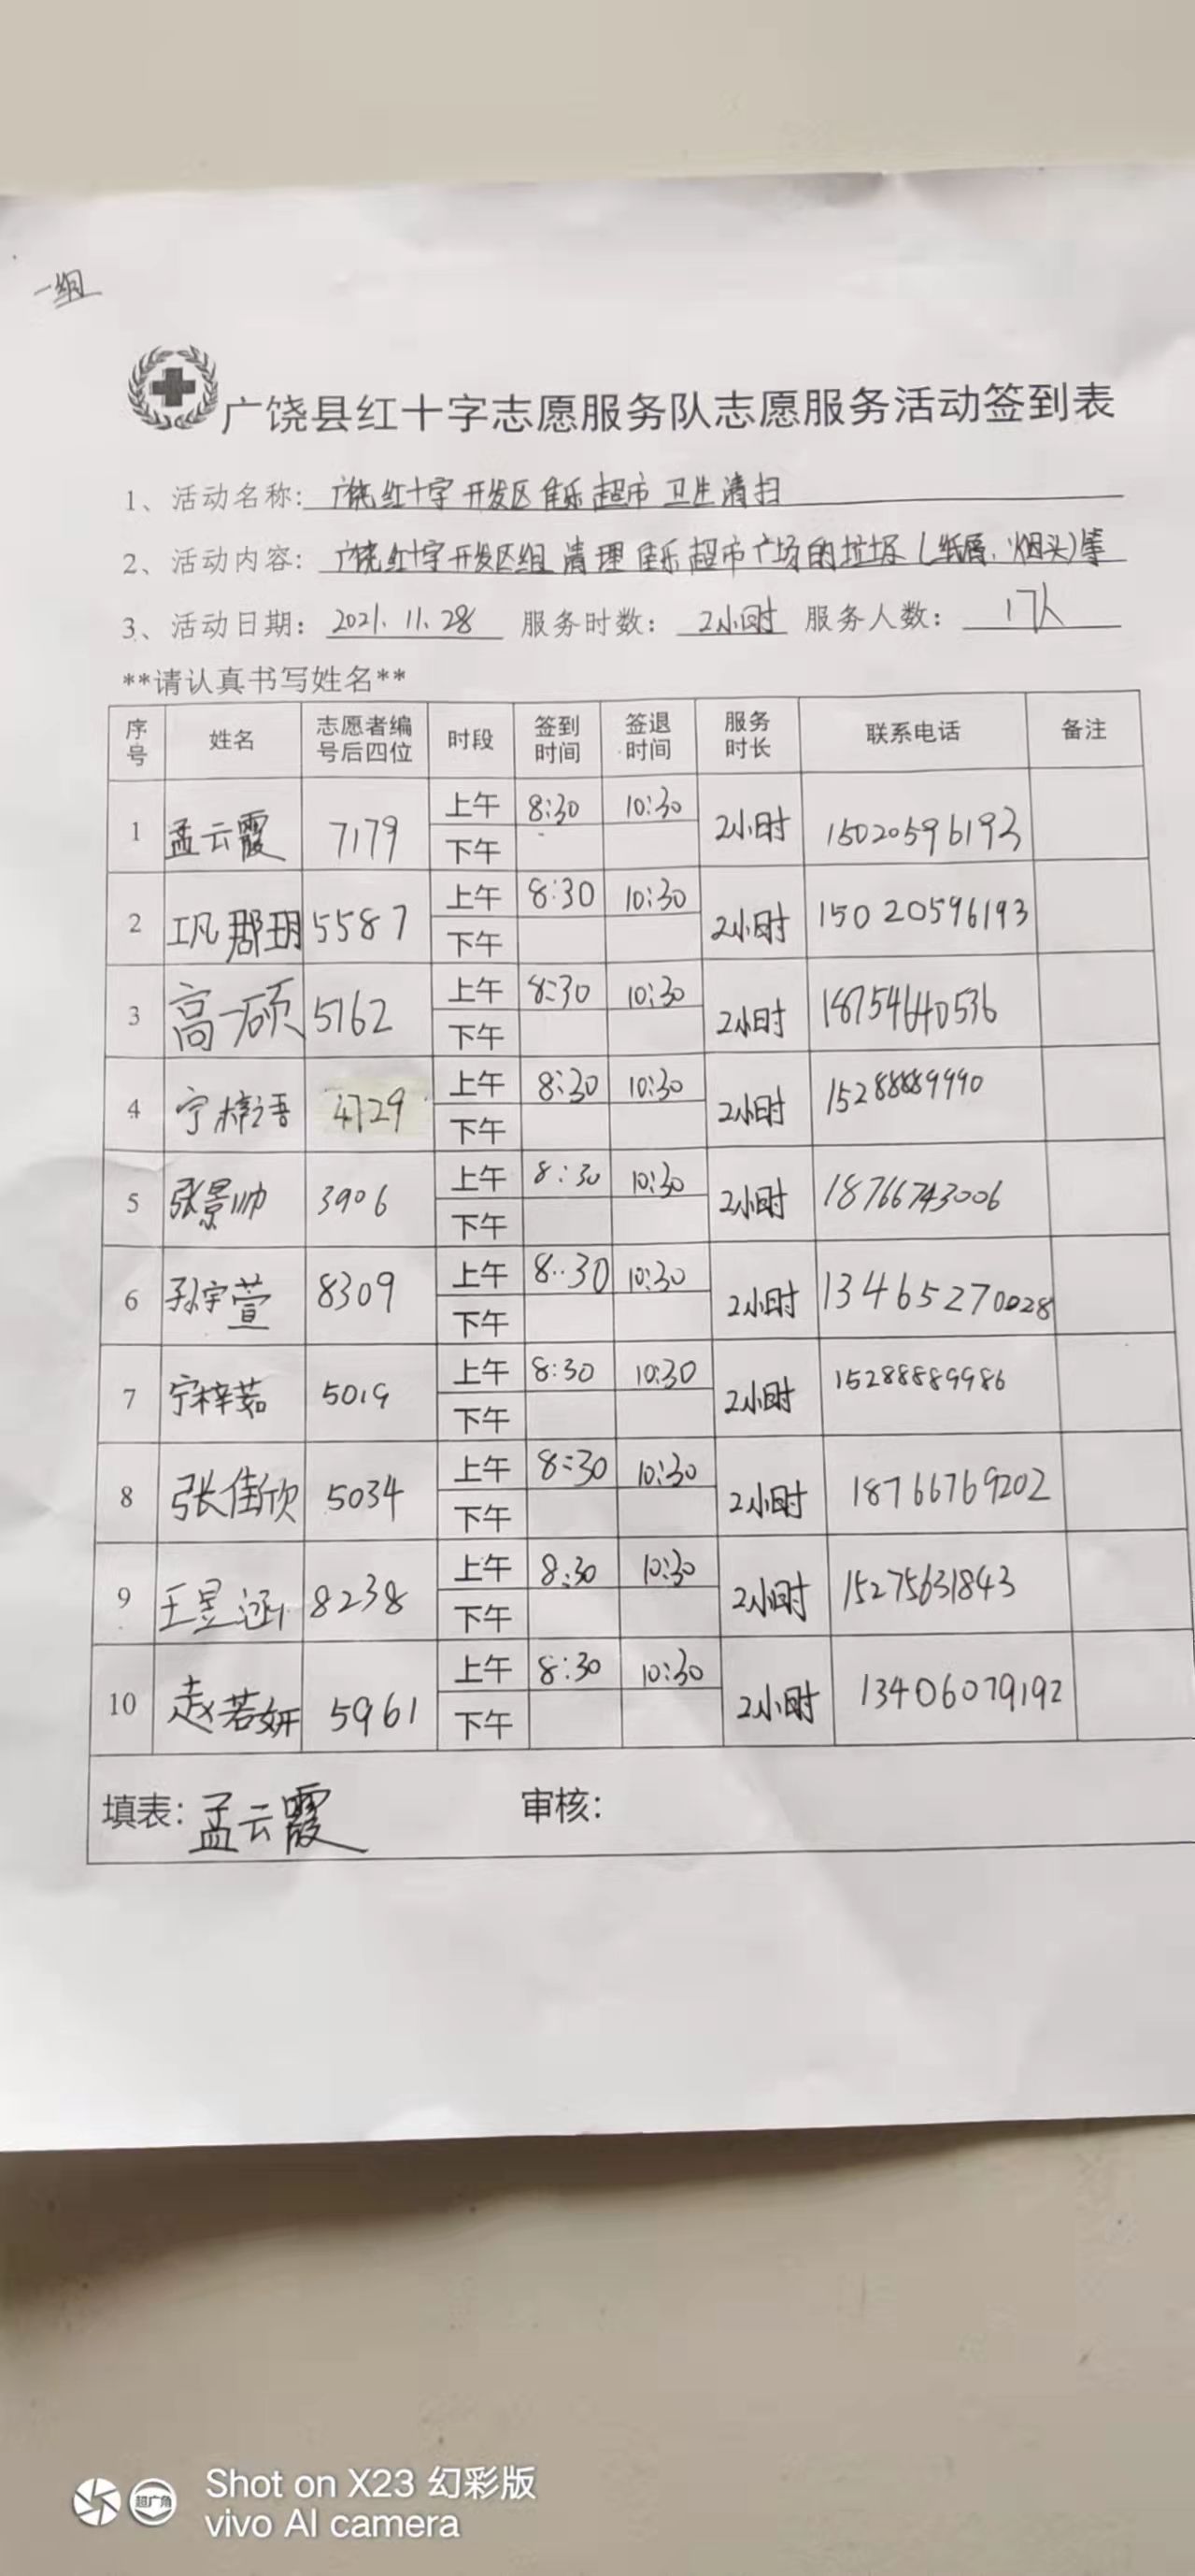 一组
广饶县红十字志愿服务队志愿服务活动签到表
1、活动名称: 广饶红十字开发区佳乐超市卫生清扫
2、活动内容: 广饶红十字开发区组清理佳乐超市广场的垃圾(纸屑、烟头)等
3、活动日期: 2021.11.28 服务时数: 2小时 服务人数: 17人
**请认真书写姓名**
序号 姓名 志愿者编号后四位 时段 签到时间 签退时间 服务时长 联系电话 备注
1 孟云霞 7179 上午 8:30 10:30 2小时 15020596193
下午
2 巩郡玥 5587 上午 8:30 10:30 2小时 15020596193
下午
3 高一硕 5162 上午 8:30 10:30 2小时 18754640536
下午
4 宁梓语 4729 上午 8:30 10:30 2小时 15288889990
下午
5 张景帅 3906 上午 8:30 10:30 2小时 18766743006
下午
6 孙宇萱 8309 上午 8:30 10:30 2小时 13465270028
下午
7 宁梓茹 5019 上午 8:30 10:30 2小时 15288889986
下午
8 张佳欣 5034 上午 8:30 10:30 2小时 18766769202
下午
9 王昱涵 8238 上午 8:30 10:30 2小时 15275631843
下午
10 赵若妍 5961 上午 8:30 10:30 2小时 13406079192
下午
填表: 孟云霞 审核:
超广角
Shot on X23 幻彩版
vivo AI camera